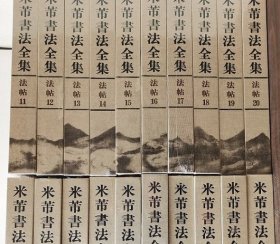 米芾書法全集 法帖 11
米芾書法全集 法帖 12
米芾書法全集 法帖 13
米芾書法全集 法帖 14
米芾書法全集 法帖 15
米芾書法全集 法帖 16
米芾書法全集 法帖 17
米芾書法全集 法帖 18
米芾書法全集 法帖 19
米芾書法全集 法帖 20
米芾書法
米芾書法
米芾書法
米芾書法
米芾書法
米芾書法全
米芾書法
米芾書法
米芾書法
米芾書法